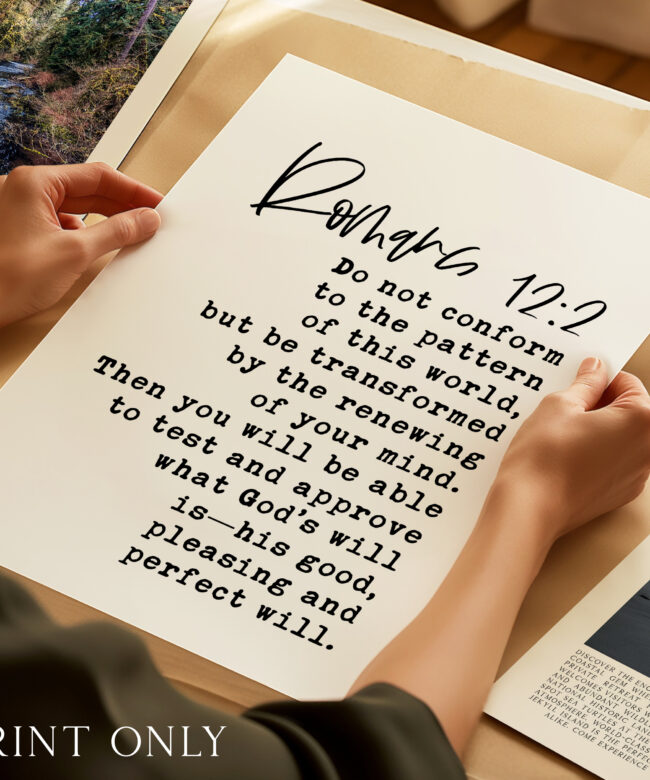 Romans 12:2
Do not conform
to the pattern
of this world,
but be transformed
by the renewing
of your mind.
Then you will be able
to test and approve
what God's will
is—his good,
pleasing and
perfect will.
DISCOVER THE
COASTAL GEM
PRIVATE RETREAT
WELCOMES VISITORS
AND ABUNDANT
NATIONAL HISTORIC
SPOT SEA TURTLES AT THE
ATMOSPHERE, WORLD-CLASS
JEKYLL ISLAND IS THE
ALIKE. COME EXPERIENCE
RINT ONLY